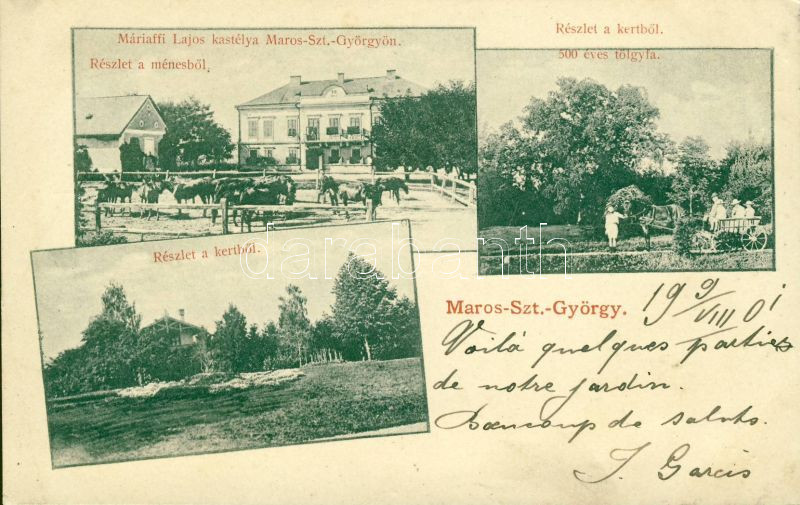 Máriaffi Lajos kastélya Maros-Szt.-Györgyön.
Részlet a ménesből.
Részlet a kertből.
500 éves tölgyfa.
Részlet a kertből.
darabanth
Maros-Szt.-György.
19 9/VIII 01
Voilà quelques parties
de notre jardin.
Beaucoup de saluts.